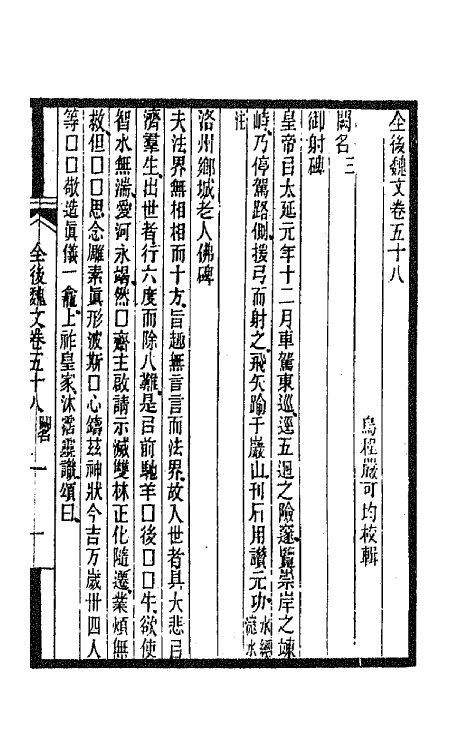 全後魏文卷五十八
烏程嚴可均校輯
闕名三
御射碑
皇帝㠯太延元年十二月車駕東巡逕五迴之險邃覽崇岸之竦
峙乃停駕路側援弓而射之飛矢踰于巖山刊石用讚元功水經滱水
注
洛州鄉城老人佛碑
夫法界無相相而十方旨趣無言言而法界故入世者具大悲㠯
濟羣生出世者行六度而除八難是㠯前馳羊囗後囗囗牛欲使
智水無湍愛河永竭然囗齋主啟請示滅雙林正化隨遷業煩無
救但囗囗思念雕素眞形波斯囗心鑄茲神狀今吉万歲卅四人
等囗囗敬造眞儀一龕上祚皇家沐霑靈識頌曰
全後魏文卷五十八 闕名 一